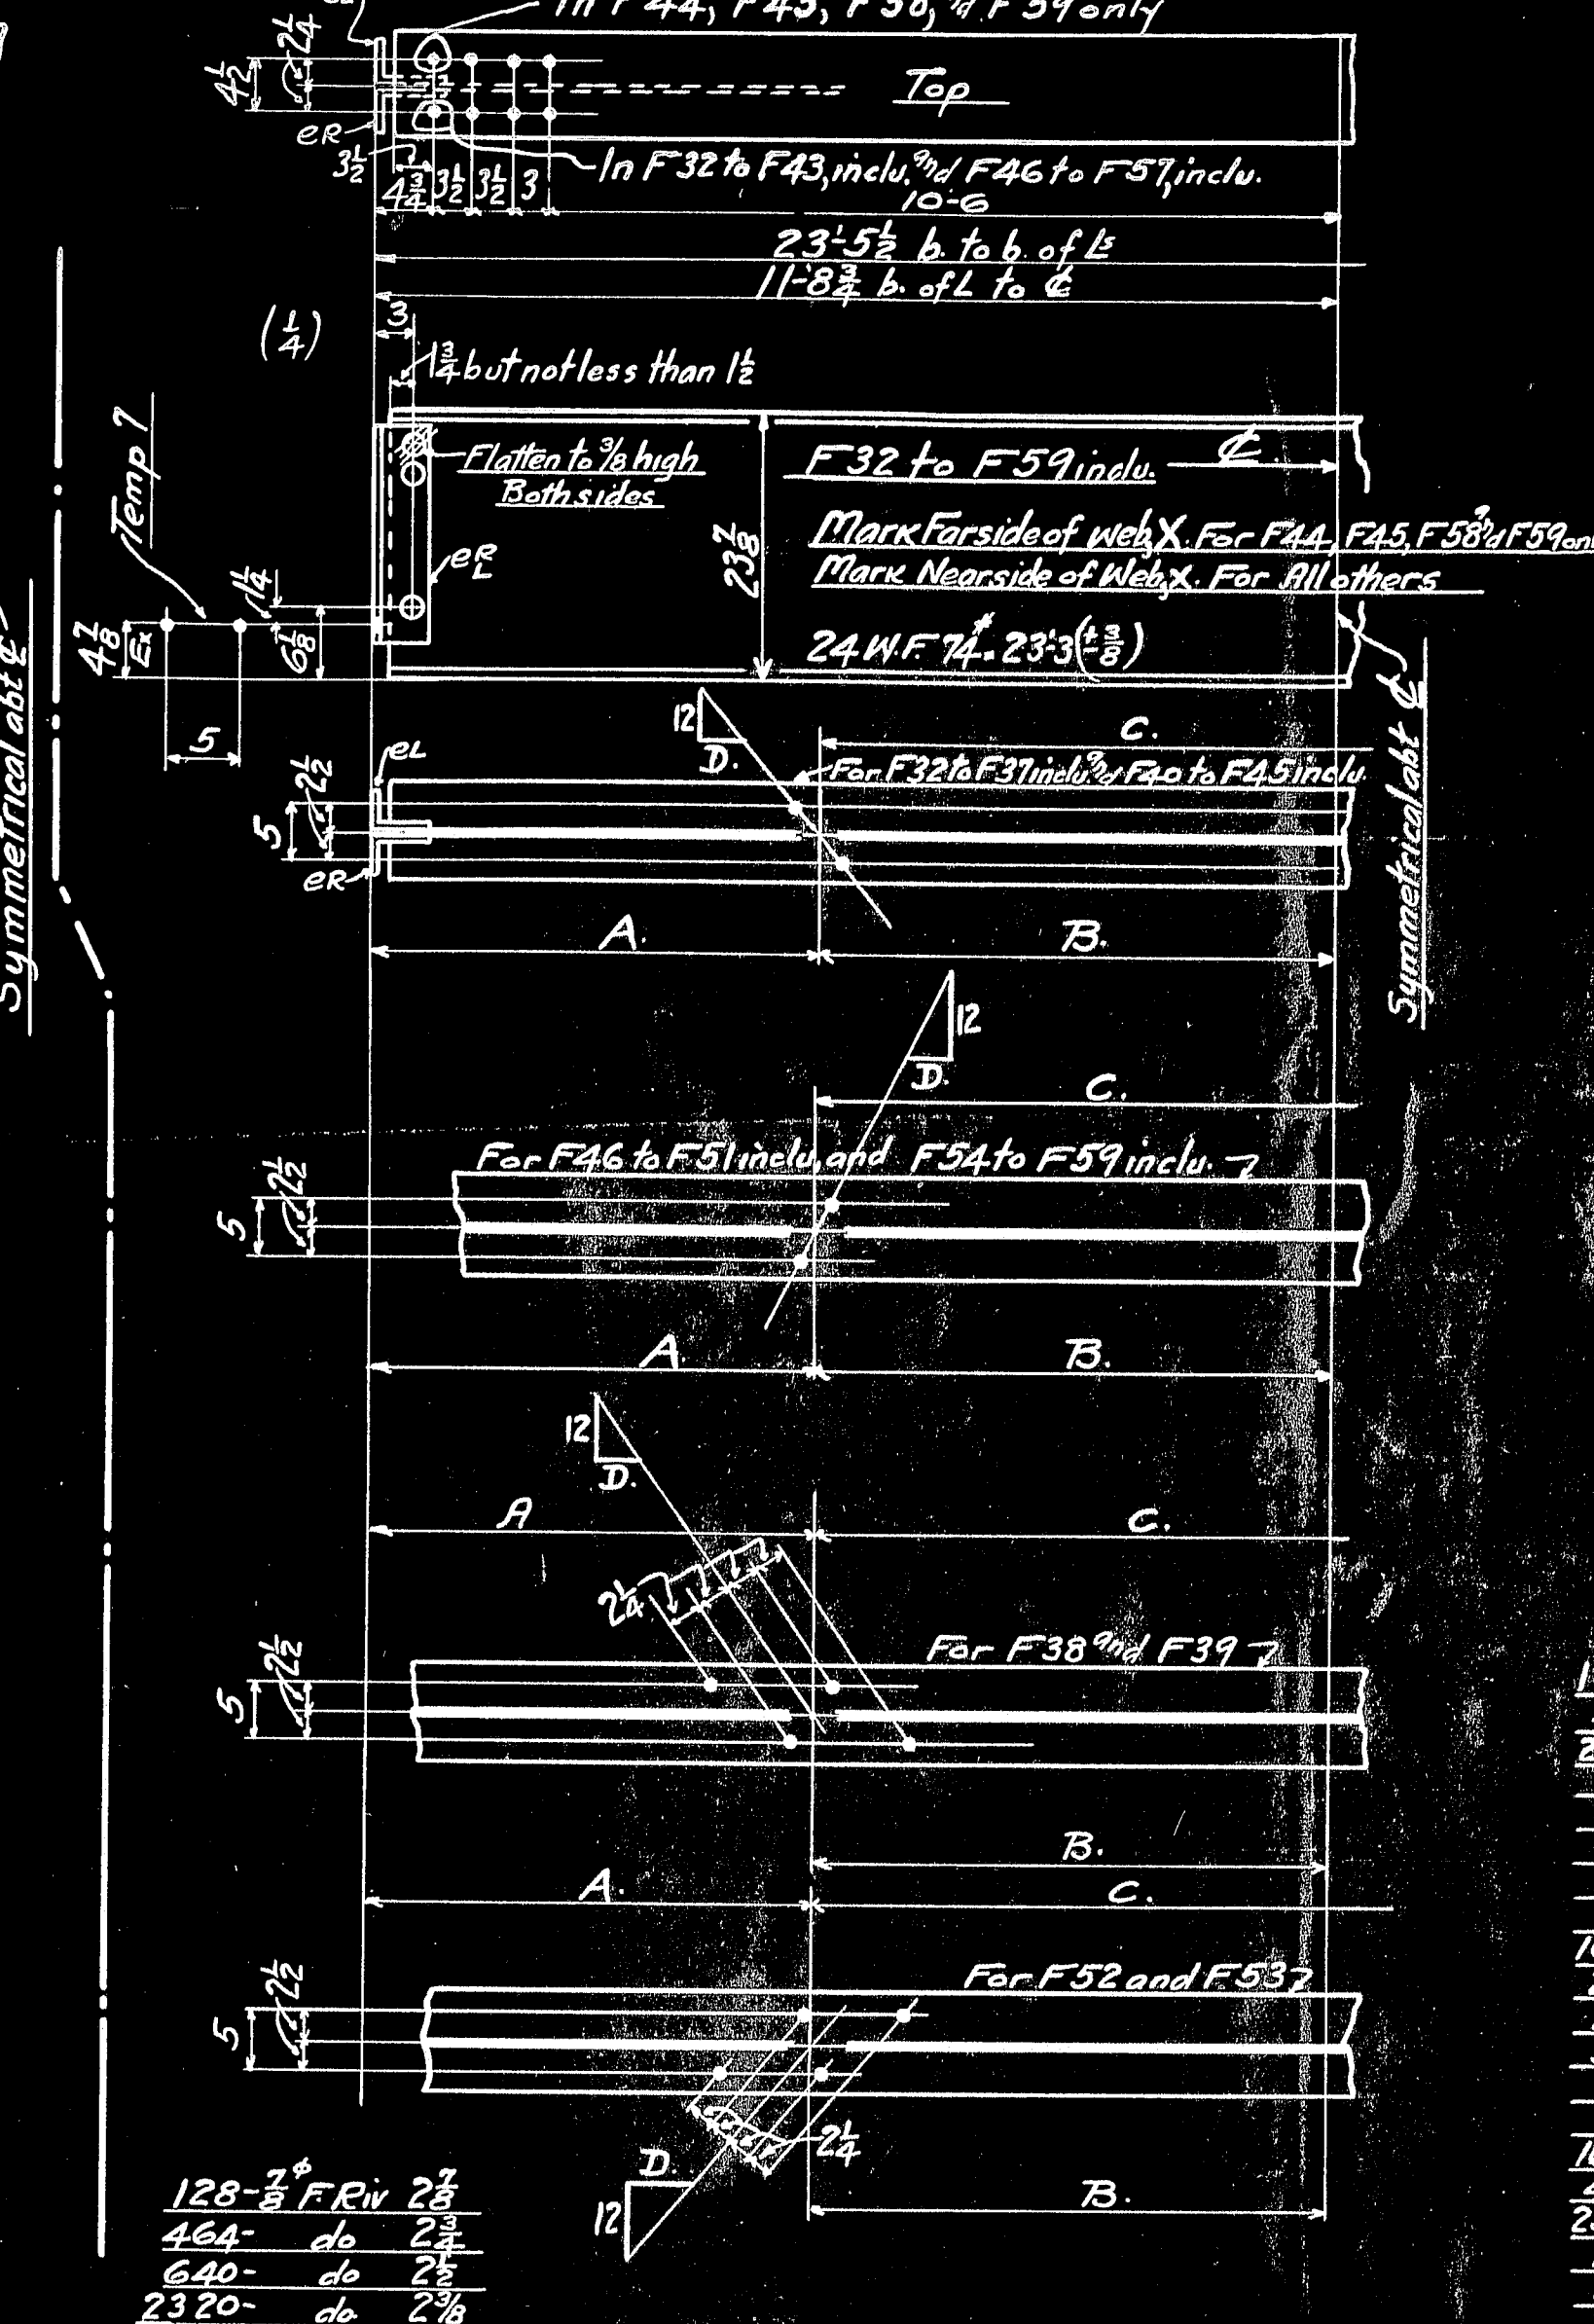 In F44, F45, F58, and F59 only
4 1/2
2 1/4
Top
eR
3 1/2
4 3/4 3 1/2 3 1/2 3
In F32 to F43, inclu. and F46 to F57, inclu.
10-6
23'-5 1/2 b. to b. of Ls
11'-8 3/4 b. of L to ℄
(1/4)
3
1 3/4 but not less than 1 1/2
Temp 7
Flatten to 3/8 high
Both sides
eR
L
23 7/8
F32 to F59 inclu.
℄
Mark Farside of web, X. For F44, F45, F58 and F59 on
Mark Nearside of Web, X. For All others
24 W.F. 74# - 23'-3 (± 3/8)
4 7/8
Ex
1 1/4
6 1/8
5
Symmetrical abt ℄
Symmetrical abt ℄
12
D.
C.
eL
For F32 to F37 inclu. and F40 to F45 inclu
5
2 1/2
eR
A.
B.
12
D.
C.
For F46 to F51 inclu, and F54 to F59 inclu.
5
2 1/2
A.
B.
12
D.
A
C.
2 1/4
For F38 and F39
5
2 1/2
B.
A.
C.
For F52 and F53
5
2 1/2
2 1/4
D.
12
B.
128- 7/8 ø F. Riv 2 7/8
464- do 2 3/4
640- do 2 1/2
2320- do 2 3/8